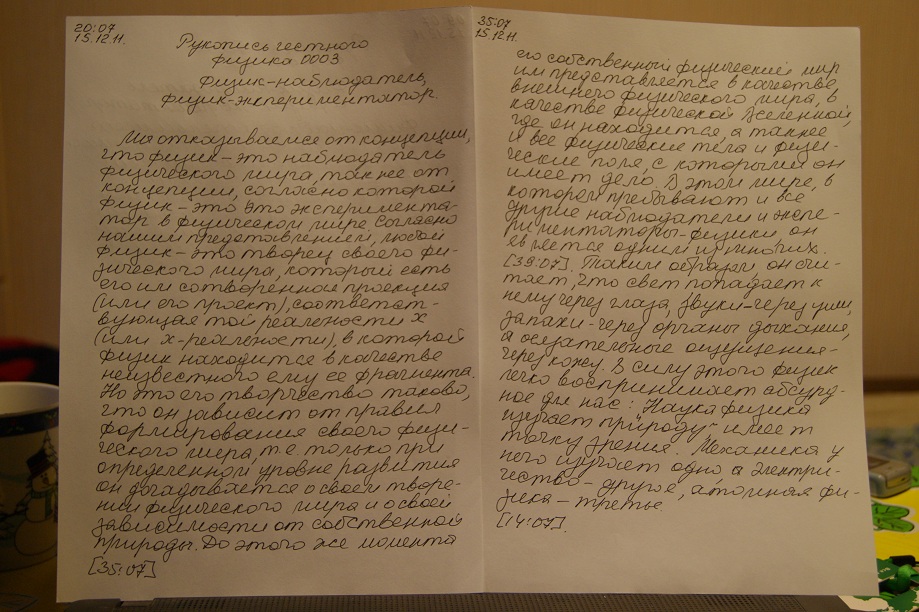 20:07
15.12.11.
Рукопись честного
физика 0003
Физик-наблюдатель,
физик-экспериментатор.
Мы отказываемся от концепции,
что физик – это наблюдатель
физического мира, так же от
концепции, согласно которой
физик – это это эксперимента-
тор в физическом мире. Согласно
нашим представлениям, любой
физик – это творец своего фи-
зического мира, который есть
его им сотворенная проекция
(или его проект), соответст-
вующая той реальности х
(или х-реальности), в которой
физик находится в качестве
неизвестного ему ее фрагмента.
Но это его творчество таково,
что он зависит от правил
формирования своего физи-
ческого мира, т.е только при
определенном уровне развития
он догадывается о своем творе-
нии физического мира и о своей
зависимости от собственной
природы. До этого же момента
[35:07]
35:07
15.12.11.
его собственный физический мир
им представляется в качестве
внешнего физического мира, в
качестве физической Вселенной,
где он находится, а также
и все физические тела и физи-
ческие поля, с которыми он
имеет дело. В этом мире, в
котором пребывают и все
другие наблюдатели и экспе-
риментаторы-физики он
является одним из многих.
[39:07]. Таким образом, он счи-
тает, что свет попадает к
нему через глаза, звуки – через уши,
запахи – через органы дыхания,
а осязательные ощущения –
через кожу. В силу этого физик
легко воспринимает абсурд-
ное для нас: "Наука физика
изучает природу" имеет
точку зрения. Механика у
него изучает одно а электри-
чество – другое, атомная фи-
зика – третье.
[14:07].